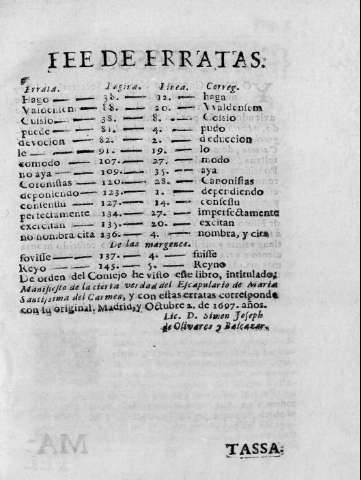 FEE DE ERRATAS.
Errata. Pagina. Linea. Correg.
Hago — 38. — 12. — haga
Valdensem — 18. — 20. — VValdensem
Cuisio — 38. — 8. — Coisio
puede — 81. — 4. — pudo
devocion — 82. — 2. — deduccion
le — 91. — 19. — lo
comodo — 107. — 27. — modo
no aya — 109. — 35. — aya
Coronistas — 120. — 28. — Canonistas
deponiendo — 123. — 1. — dependiendo
contensu — 127. — 14. — consensu
perfectamente — 134. — 27. — imperfectamente
exercitan — 135. — 20. — excitan
no nombra cita — 136. — 4. — nombra, y cita
De las margenes.
fovisse — 137. — 4. — fuisse
Reyo — 145. — 5. — Reyno
De orden del Consejo he visto este libro, intitulado:
Manifiesto de la cierta verdad del Escapulario de Maria
Santissima del Carmen, y con estas erratas corresponde
con su original. Madrid, y Octubre 2. de 1697. años.
Lic. D. Simon Joseph
de Olivares y Balcazar.
TASSA.